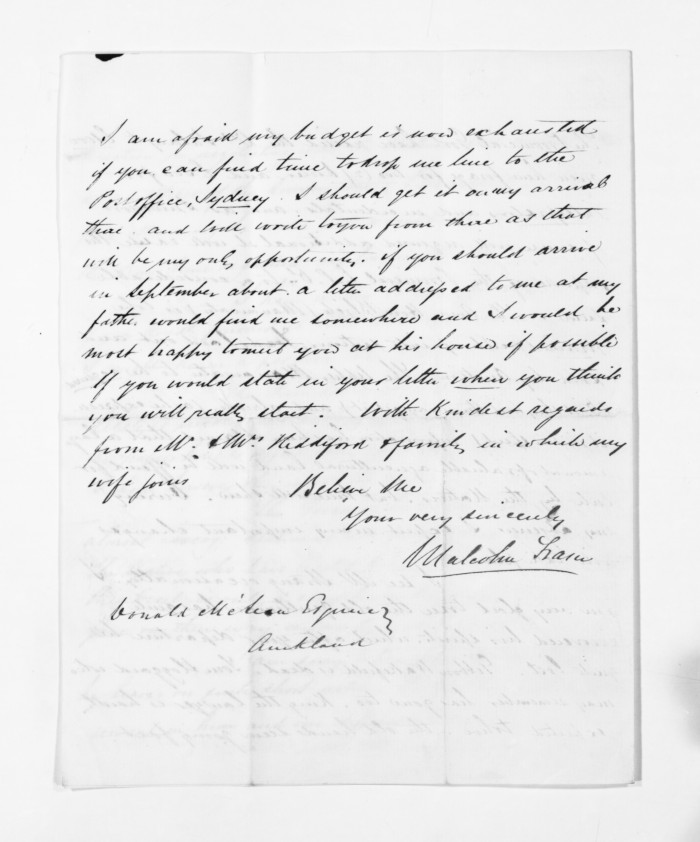 I am afraid my budget is now exhausted
if you can find time to drop me line to the
Post office, Sydney. I should get it on my arrival
there. and will wrote to you from there as that
will be my only opportunity. if you should arrive
in September about. a letter addressed to me at my
father. would find me somewhere and I would be
most happy to meet you at his house if possible
If you would state in your letter when you think
you will really start. With Kindest regards
from Mr. & Mrs Hiddiford & family in which my
wife joins
Believe Me
Your very sincerely
Malcolm Fraser
Donald McLean Esquire
Auckland